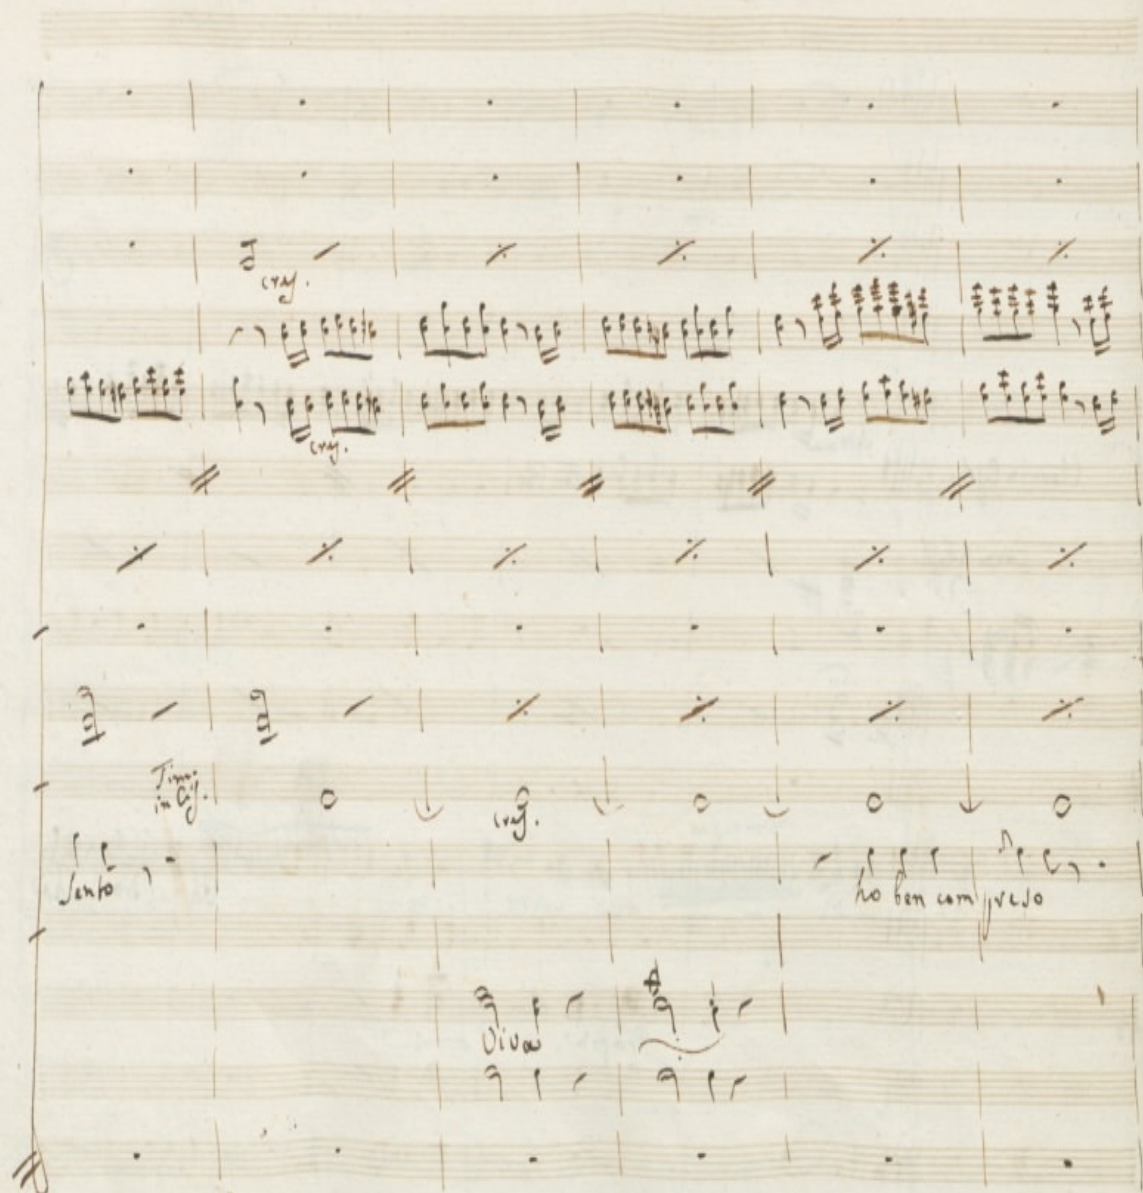 cres.
cres.
Timp.
in C
cres.
sento
ho ben compreso
Viva